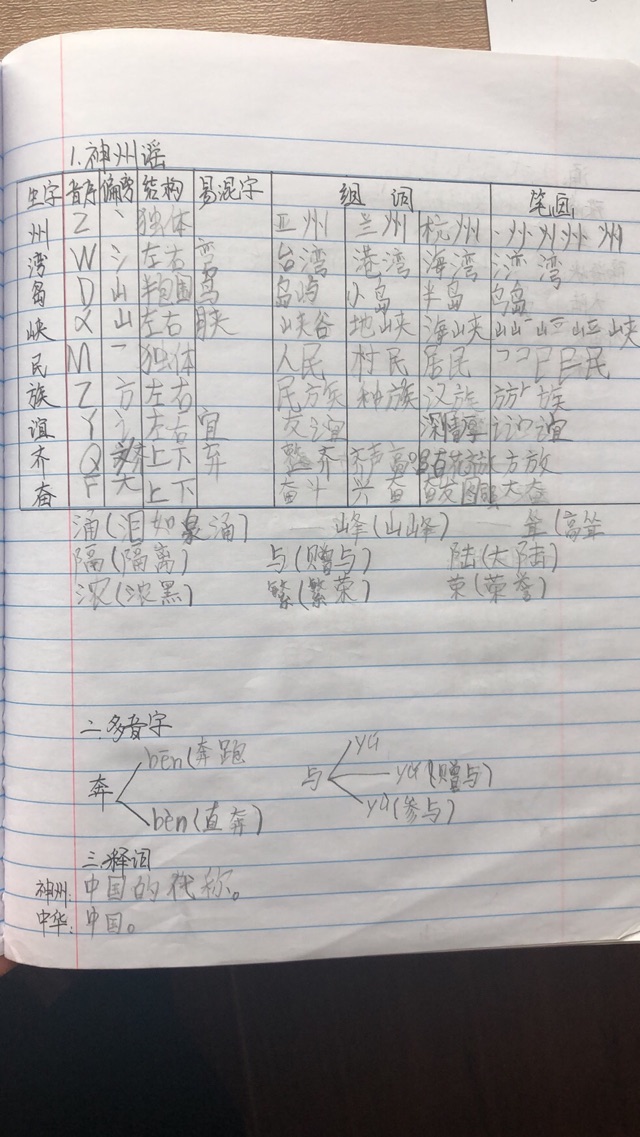 1.神州谣
生字 音序 偏旁 结构 易混字 组词 笔画
州 Z 丶 独体 亚州 兰州 杭州 州
湾 W 氵 左右 弯 台湾 港湾 海湾 湾
岛 D 山 半包围 鸟 岛屿 小岛 半岛 岛
峡 X 山 左右 陕 峡谷 地峡 海峡 峡
民 M 独体 人民 村民 居民 民
族 Z 方 左右 民族 种族 汉族 族
谊 Y 讠 左右 宜 友谊 深情厚谊
齐 Q 文 上下 弃 整齐
奋 F 大 上下 奋斗 兴奋 奋发图强 大奋
涌(泪如泉涌) 峰(山峰)
隔(隔离) 与(赠与) 陆(大陆)
浓(浓黑) 繁(繁荣) 荣(荣誉)
二.多音字
奔 bēn(奔跑
bèn(直奔)
与 (赠与)
(参与)
三.释词
神州:中国的代称。
中华:中国。